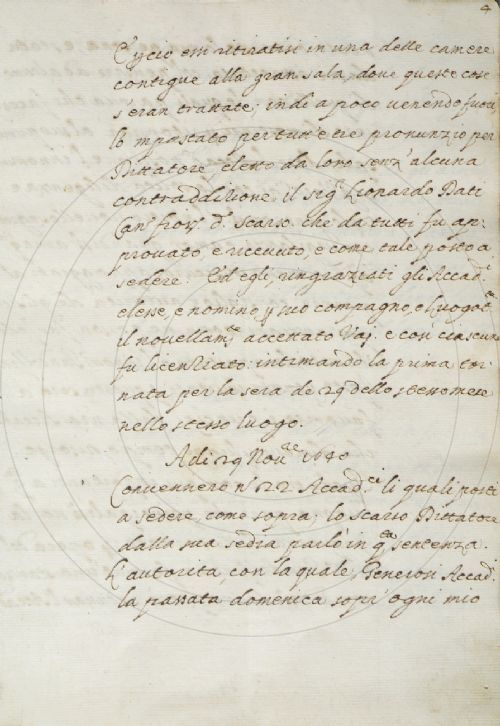 4
E ꝑciò essi ritiratisi in una delle camere
contigue alla gran sala, doue queste cose
s'eran trattate; indi a poco uenendo fuori,
lo Impastato per tutt'e tre pronunziò per
Dittatore, eletto da loro senz'alcuna
contraddizione il sig.r Lionardo Dati
Can.co fior.no d.o Scarso che da tutti fu ap=
prouato, e riceuuto, e come tale posto a
sedere. Ed egli, ringraziati gli Accad.i
elesse, e nominò ꝑ suo compagno, e luogot.e
il nouellam.te accettato Vaj. e così ciascuno
fu licenziato: intimando la prima tor=
nata per la sera de 29 dello stesso mese
nello stesso luogo.
A di 29 Nou.bre 1640
Conuennero n.o 22 Accad.ci li quali posti
a sedere, come sopra; lo Scarso Dittatore
dalla sua sedia parlò in q.ta sentenza.
L'autorità, con la quale, Generosi Accad.i
la passata domenica sopr'ogni mio